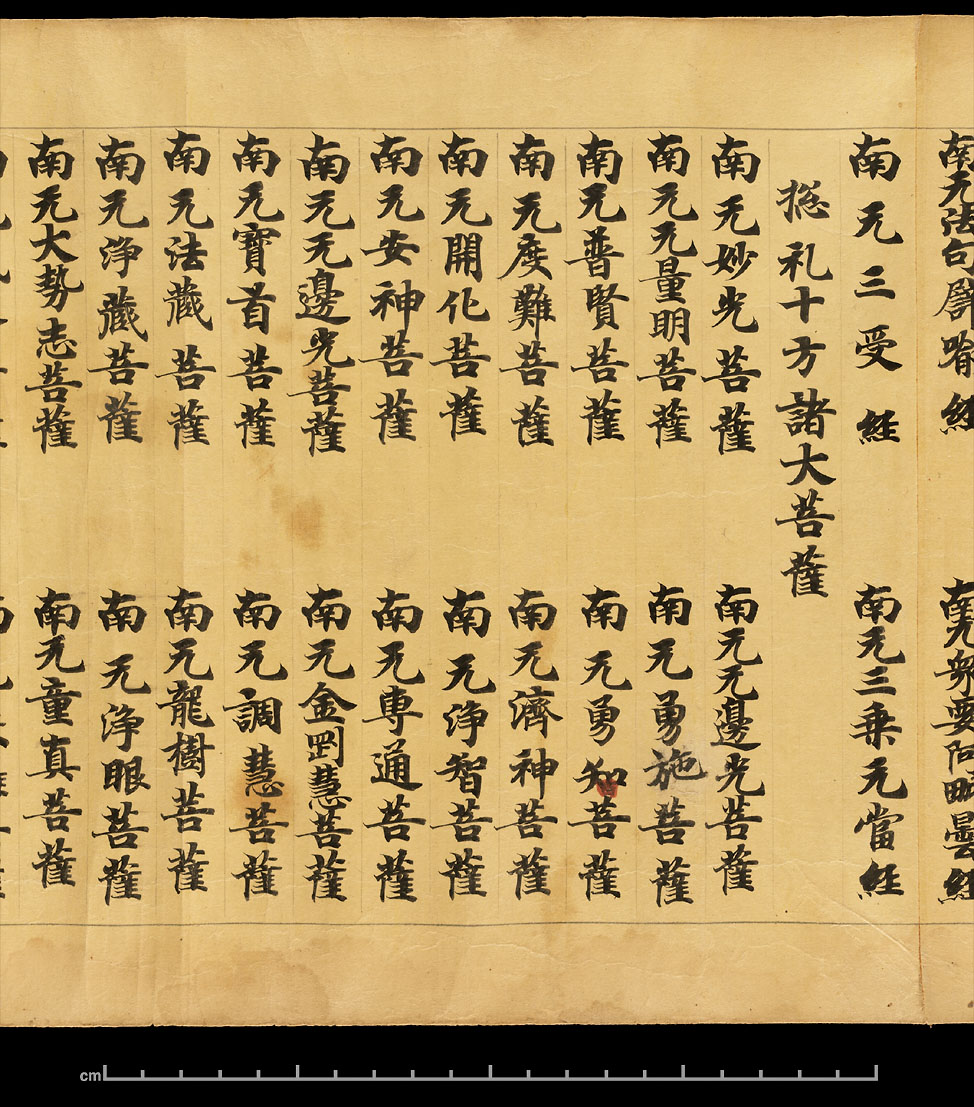 南无法句譬喻經
南无衆要阿毗曇經
南无三受經
南无三乗无當經
揔礼十方諸大菩薩
南无妙光菩薩
南无无邊光菩薩
南无无量明菩薩
南无勇施菩薩
南无普賢菩薩
南无勇智菩薩
南无度難菩薩
南无濟神菩薩
南无開化菩薩
南无浄智菩薩
南无安神菩薩
南无専通菩薩
南无无邊光菩薩
南无金剛慧菩薩
南无寶首菩薩
南无調慧菩薩
南无法藏菩薩
南无龍樹菩薩
南无浄藏菩薩
南无浄眼菩薩
南无大勢志菩薩
南无童真菩薩
cm